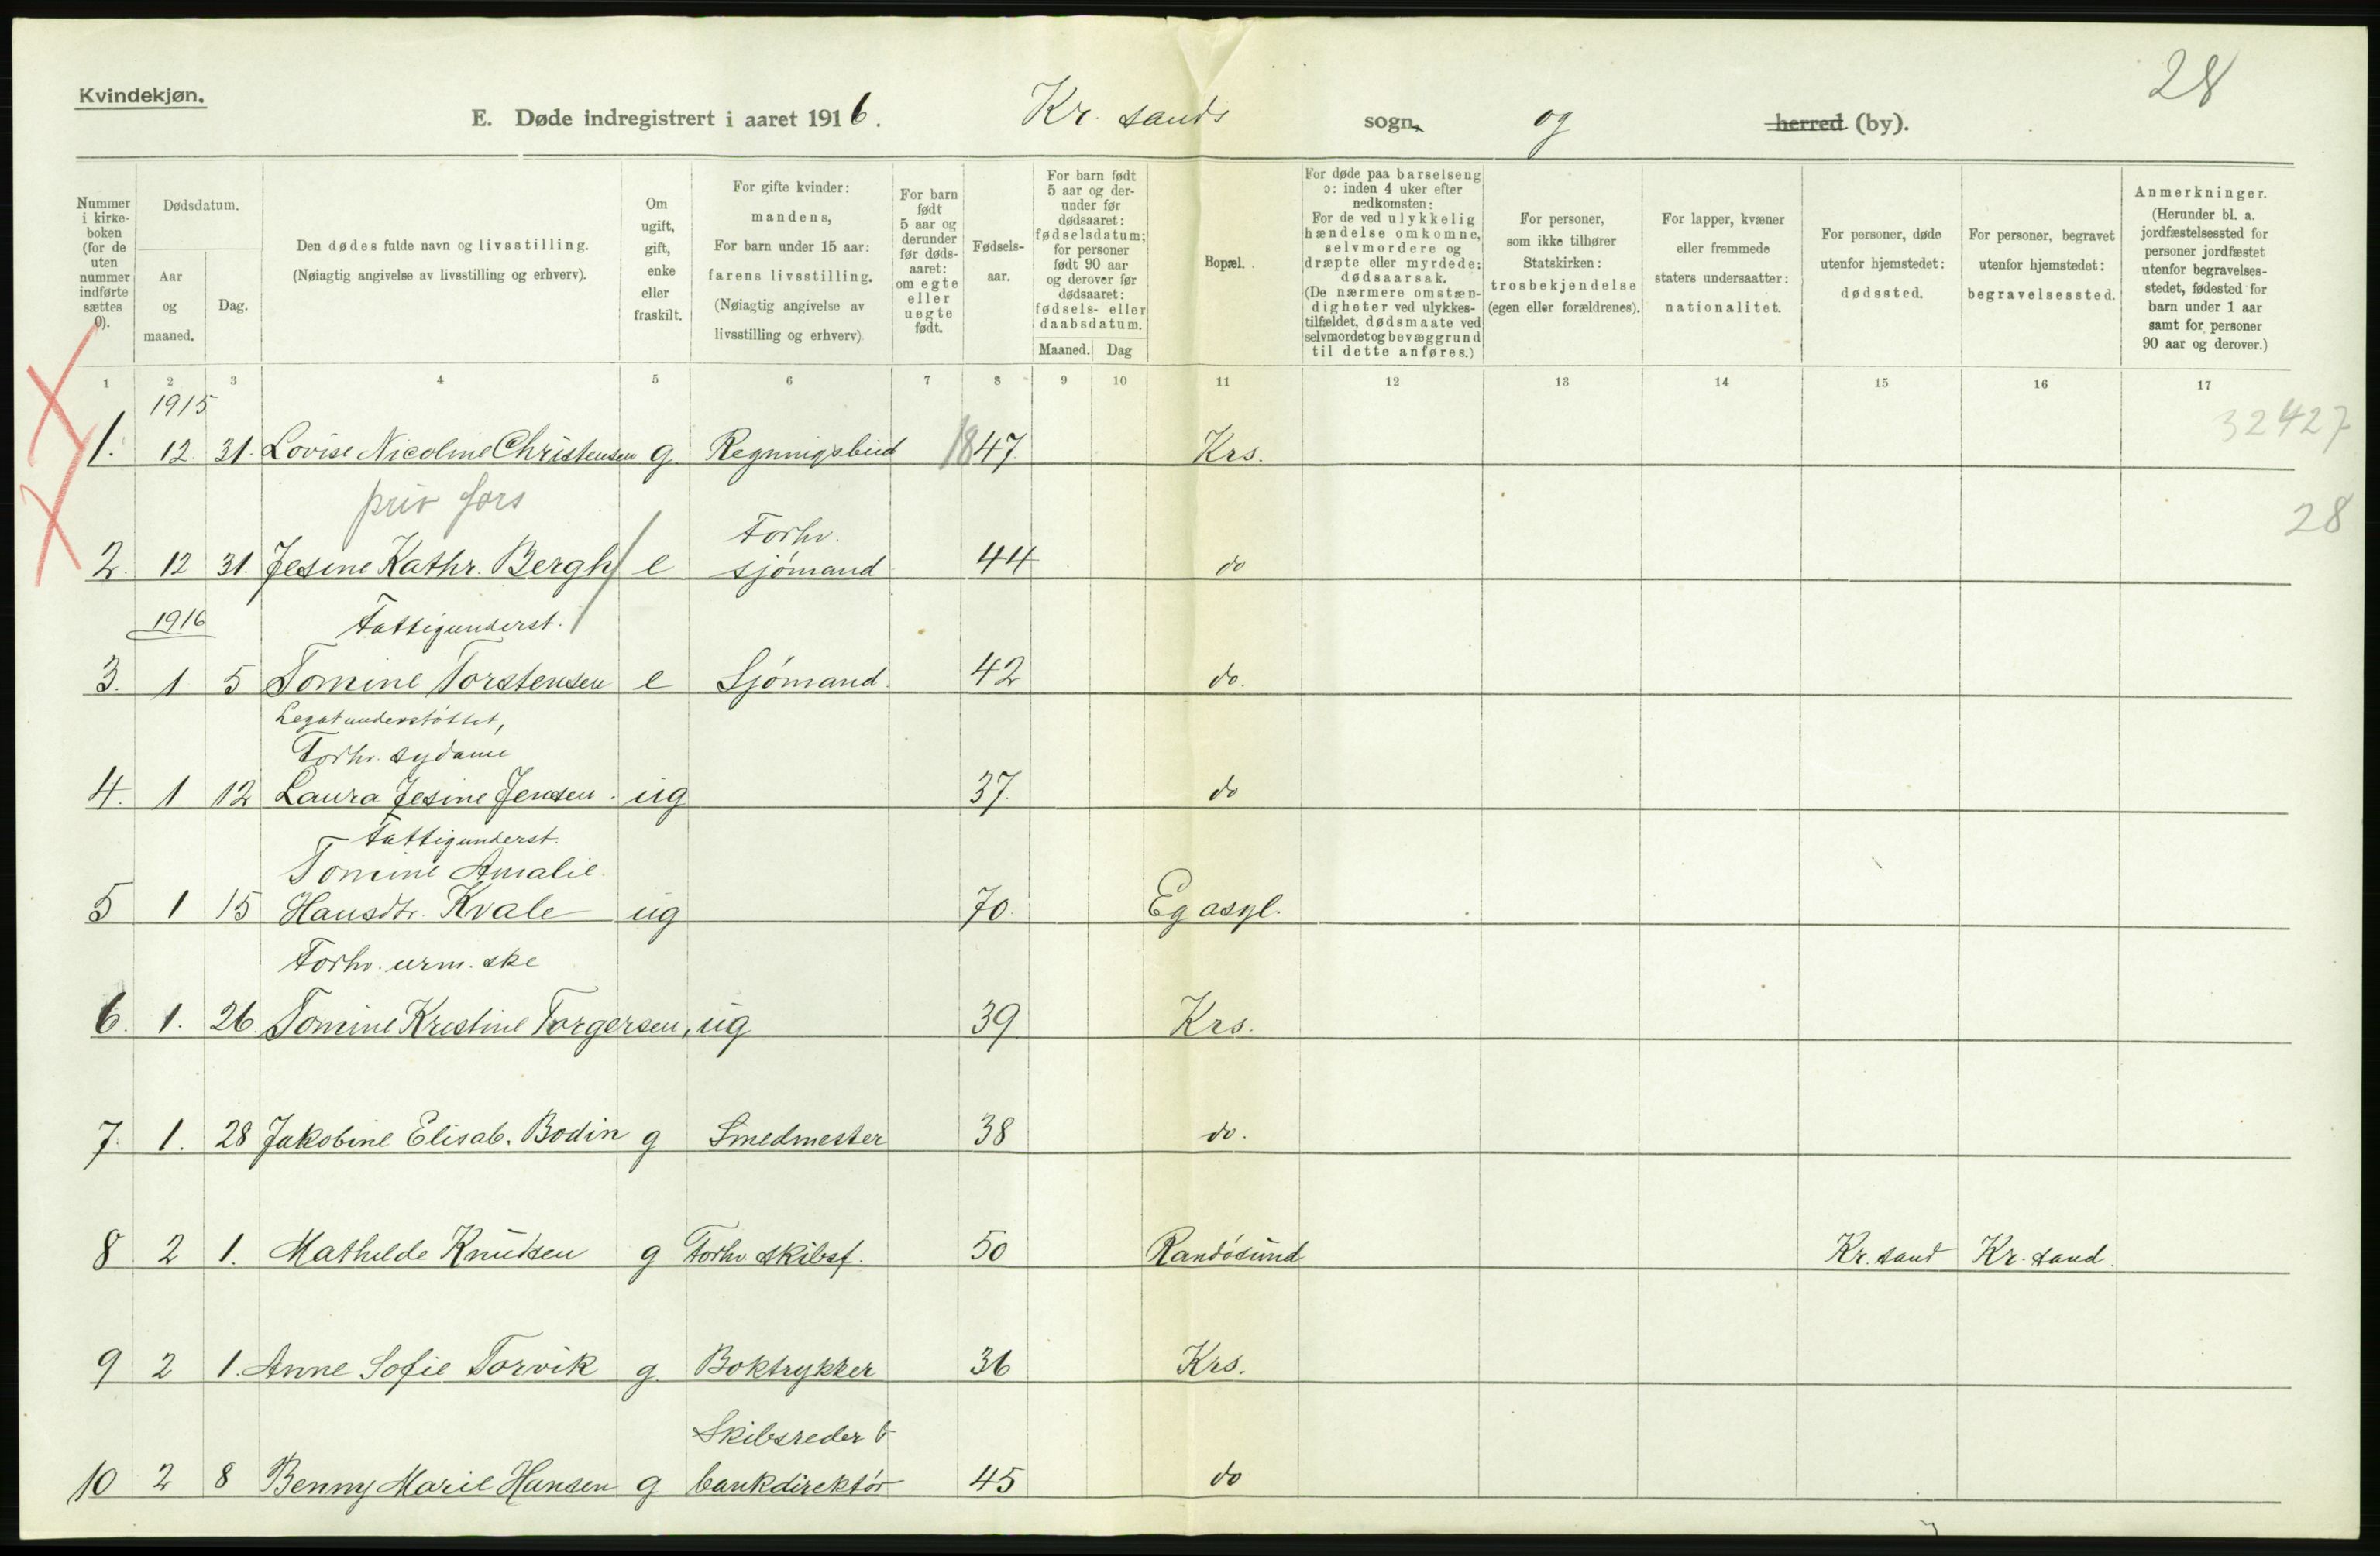 28
Kvindekjøn.
E. Døde indregistrert i aaret 1916. Kr. sands sogn og herred (by).
Nummer i kirke-boken (for de uten nummer indførte sættes 0).
Dødsdatum.
Aar og maaned.
Dag.
Den dødes fulde navn og livsstilling.
(Nøiagtig angivelse av livsstilling og erhverv).
Om ugift, gift, enke eller fraskilt.
For gifte kvinder: mandens,
For barn under 15 aar: farens livsstilling.
(Nøiagtig angivelse av livsstilling og erhverv)
For barn født 5 aar og derunder før døds-aaret: om egte eller uegte født.
Fødsels-aar.
For barn født 5 aar og der-under før dødsaaret: fødselsdatum; for personer født 90 aar og derover før dødsaaret: fødsels- eller daabsdatum.
Maaned. Dag
Bopæl.
For døde paa barselseng ɔ: inden 4 uker efter nedkomsten:
For de ved ulykkelig hændelse omkomne, selvmordere og dræpte eller myrdede: dødsaarsak.
(De nærmere omstæn-digheter ved ulykkes-tilfældet, dødsmaate ved selvmordet og bevæggrund til dette anføres.)
For personer, som ikke tilhører Statskirken: trosbekjendelse (egen eller forældrenes).
For lapper, kvæner eller fremmede staters undersaatter: nationalitet.
For personer, døde utenfor hjemstedet: dødssted.
For personer, begravet utenfor hjemstedet: begravelsessted.
Anmerkninger.
(Herunder bl. a. jordfæstelsessted for personer jordfæstet utenfor begravelses-stedet, fødested for barn under 1 aar samt for personer 90 aar og derover.)
1 2 3 4 5 6 7 8 9 10 11 12 13 14 15 16 17
1915
32427
1. 12 31. Lovise Nicoline Christensen g. Regningsbud 1847. Krs.
priv fors
28
Forhv.
2. 12 31. Jesine Kathr. Bergh e sjömand 44 do
1916 Fattigunderst.
3. 1 5 Tomine Torstensen e Sjömand. 42 do.
Legatunderstöttet,
Forhv. sydame
4. 1 12 Laura Jesine Jensen. ug 37. do
Fattigunderst.
Tomine Amalie
5 1 15 Hansdtr. Kvale ug 70. Eg asyl.
Forhv. urm. ske
6. 1. 26. Tomine Kristine Torgersen, ug 39 Krs.
7. 1. 28 Jakobine Elisab. Bodin g Smedmester 38 do.
8 2 1. Mathilde Knudsen g Forhv. skibsf. 50 Randösund Kr. sand Kr. sand.
9 2 1. Anne Sofie Torvik g. Boktrykker 36 Krs.
Skibsreder &
10 2 8 Benny Marie Hansen g bankdirektör 45 do